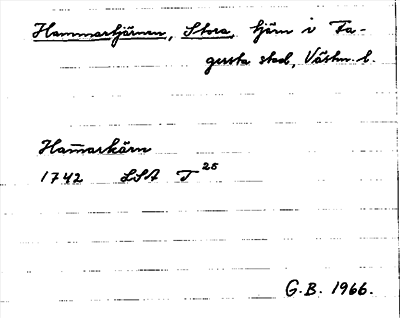 Hammartjärnen, Stora, tjärn i Fa-
gersta stad, Västm. l.
Ham̄arkärn
1742 LSA T 25
G.B. 1966.